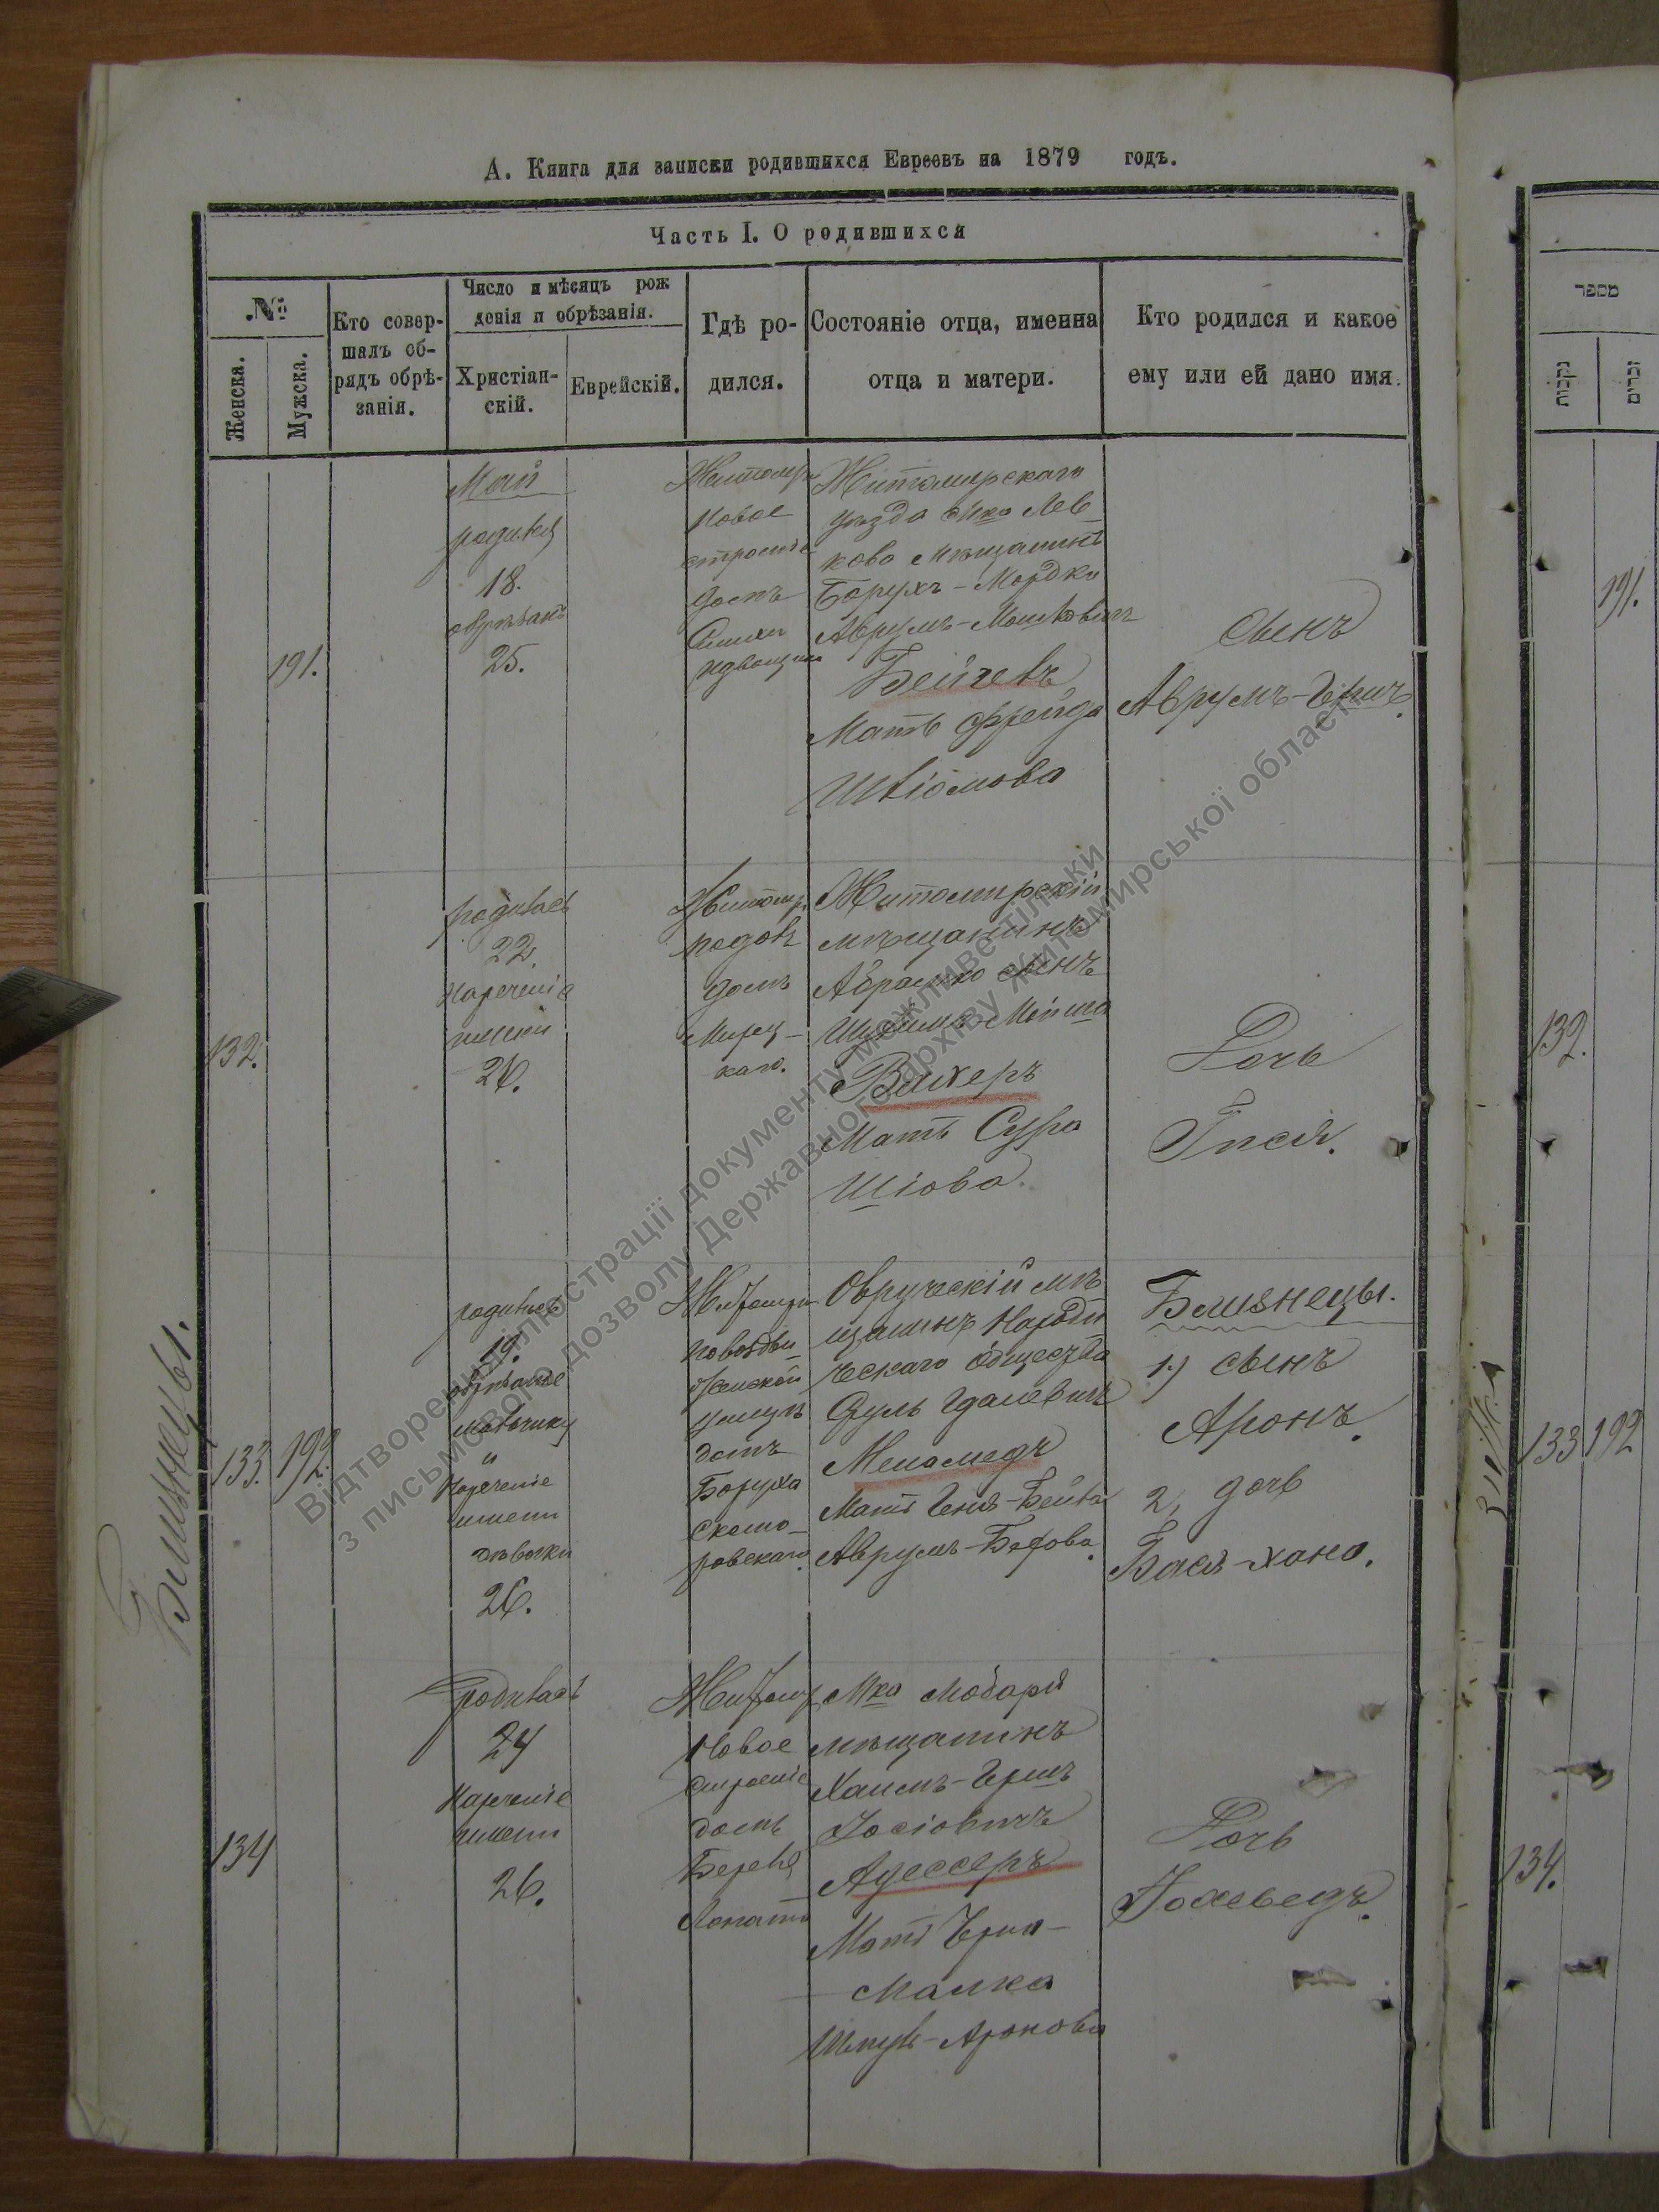 А. Книга для записки родившихся Евреевъ на 1879 годъ.
Часть I. О родившихся
№
Женска.
Мужска.
Кто совер-
шалъ об-
рядъ обрѣ-
занія.
Число и мѣсяцъ рож
денія и обрѣзанія.
Христіан-
скій.
Еврейскій.
Гдѣ ро-
дился.
Состояніе отца, именна
отца и матери.
Кто родился и какое
ему или ей дано имя.
מספר
נקבות
זכרים
191.
Май
родился
18.
обрѣзанъ
25.
Житомиръ
Новое
строеніе
домъ
Житомирскаго
уѣзда Мко Лев
ково мѣщанинъ
Борухъ-Мордко
Аврумъ-Мошковичъ
Бейгевъ
Мать Фрейда
Шліомова
сынъ
Аврумъ-Гершъ.
191.
132.
родилась
22.
Нареченіе
имени
26.
Житомир
подолъ
домъ
Мирец-
каго.
Житомирскій
мѣщанинъ
Абрамко сынъ
Шулима-Мойша
Вихеръ
Мать Сура
Шіова.
Дочь
Гися.
132.
Близнецы.
133.
192.
родились
19.
обрѣзаніе
мальчику
и
Нареченіе
имени
дѣвочки
26.
Житомир
улицѣ
домъ
Боруха
Скомо-
ровскаго.
Овручскій мѣ
щанинъ Народи
ческаго Общества
Сруль Гдалевичъ
Меламедъ
Мать Геня-Бейла
Аврумъ-Берова.
Близнецы.
1) сынъ
Аронъ.
2, дочь
Бася-Хана.
133
192
134
родилась
24
Нареченіе
имени
26.
Житомир
Новое
строеніе
домъ
Мко
мѣщанинъ
Хаимъ-Гершъ
Іосіовичъ
Адессеръ
Мать
Малка
Шмуль-Аронова
Дочь
Іохеведъ.
134.
Відтворення ілюстрації документу можливе тільки
з письмового дозволу Державного архіву Житомирської області